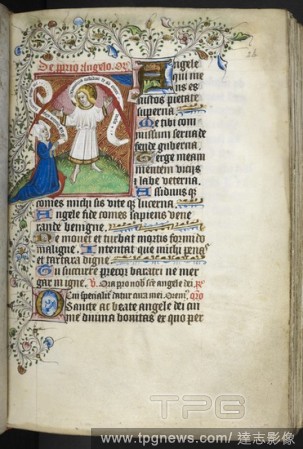 De proprio Angelo. Or̄
Angele
qui me
us es
custos pietate
superna.
Me tibi com
missum serua de
fende guberna.
Terge meam
mentem viciis
et labe veterna.
Assiduus q̄
comes michi sis vite q̄ lucerna.
Angele fide comes sapiens vene
rande benigne.
De monet et turbat mortis formido
maligne. Intentat que michi penas
et tartara digne
Tu succurre precor baratri ne mer
gar in igne. v. Ora pro nob̄ sc̄e angele dei. R̄
Qui specialiter datur
Sancte ac beate angele dei an
que diuina bonitas ex quo per
TPG
www.tpgnews.com/達志影像